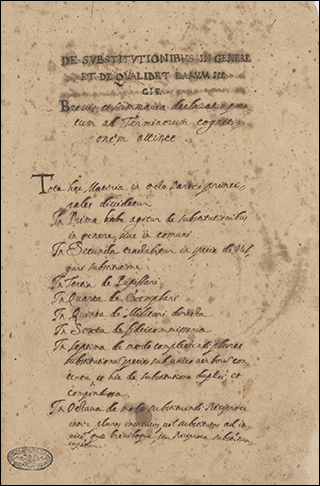 DE SVBSTITVTIONIBVS IN GENERE
ET DE QVALIBET EARVM SPE
CIE.
Brevis, et summaria declaratio quan
tum ad Terminorum cogniti
onem attinet.
Tota hęc Materia in octo Partes princi
pales dividetur
In Prima verbo agetur de substitutionibus
in genere, sive in comuni
In Secunda tradabitur in specie de Vul
gari substitutione
In Tertia de Pupillari
In Quarta de Exemplari
In Quinta de Militari directa
In Sexta de fideicommissaria
In Septima de modo complectendi plures
substitutionis species sub unico verborum con
centu, et hic de substitutione duplici, et
compendiosa
In Octava de modo substituendi Reciproce
inter plures